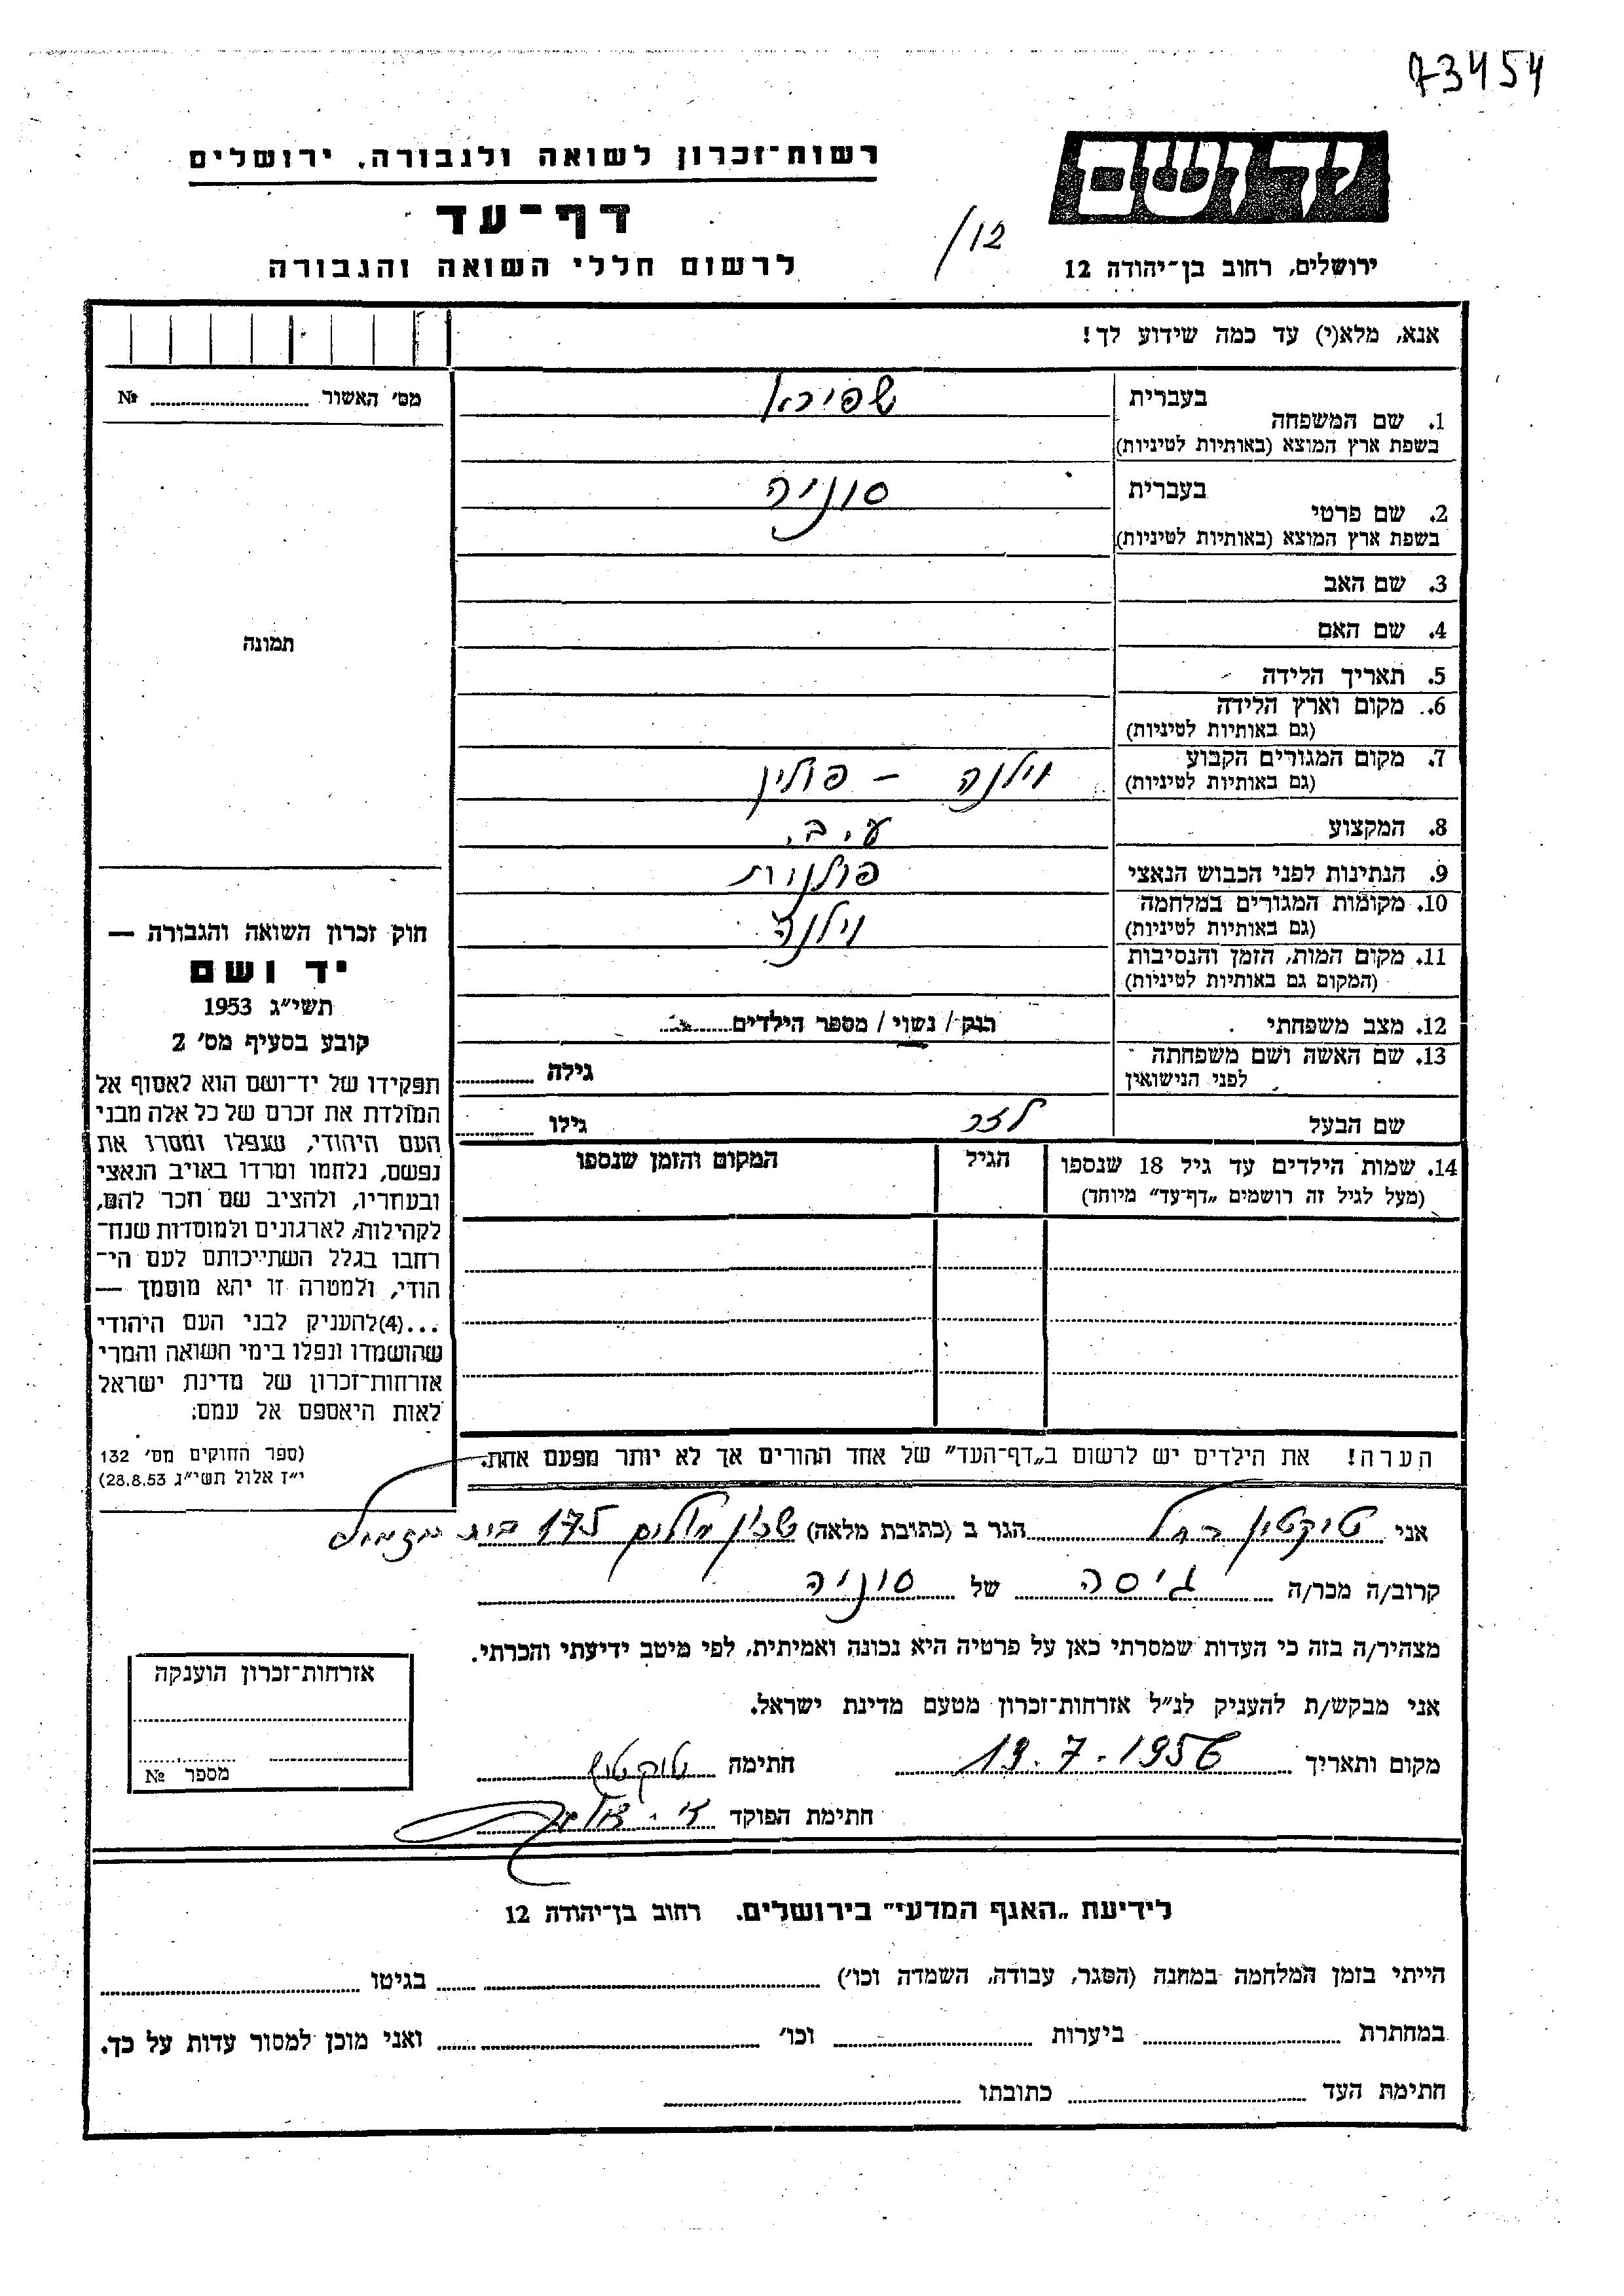 73454
יד ושם
רשות־זכרון לשואה ולגבורה, ירושלים
דף־עד
לרשום חללי השואה והגבורה
/12
ירושלים, רחוב בן־יהודה 12
אנא, מלא(י) עד כמה שידוע לך!
מס׳ האשור № 
1. שם המשפחה בעברית שפירא
בשפת ארץ המוצא (באותיות לטיניות)
2. שם פרטי בעברית סוניה
בשפת ארץ המוצא (באותיות לטיניות)
3. שם האב
4. שם האם
5. תאריך הלידה
6. מקום וארץ הלידה
(גם באותיות לטיניות)
7. מקום המגורים הקבוע וילנה – פולין
(גם באותיות לטיניות)
8. המקצוע ע.ב.
9. הנתינות לפני הכבוש הנאצי פולנית
10. מקומות המגורים במלחמה וילנה
(גם באותיות לטיניות)
11. מקום המות, הזמן והנסיבות
(המקום גם באותיות לטיניות)
12. מצב משפחתי רוק / נשוי / מספר הילדים
13. שם האשה ושם משפחתה גילה
לפני הנישואין
שם הבעל לזר גילו
14. שמות הילדים עד גיל 18 שנספו הגיל המקום והזמן שנספו
(מעל לגיל זה רושמים „דף־עד״ מיוחד)
הערה! את הילדים יש לרשום ב„דף־העד״ של אחד ההורים אך לא יותר מפעם אחת.
תמונה
חוק זכרון השואה והגבורה —
יד ושם
תשי״ג 1953
קובע בסעיף מס׳ 2
תפקידו של יד־ושם הוא לאסוף אל
המולדת את זכרם של כל אלה מבני
העם היהודי, שנפלו ומסרו את
נפשם, נלחמו ומרדו באויב הנאצי
ובעוזריו, ולהציב שם וזכר להם,
לקהילות, לארגונים ולמוסדות שנח־
רחבו בגלל השתייכותם לעם הי־
הודי, ולמטרה זו יהא מוסמך —
...(4)להעניק לבני העם היהודי
שהושמדו ונפלו בימי השואה והמרי
אזרחות־זכרון של מדינת ישראל
לאות היאספם אל עמם:
(ספר החוקים מס׳ 132
י״ז אלול תשי״ג 28.8.53)
אני טיקטין רחל הגר ב (כתובת מלאה) שכון עולים 175 בית
קרוב/ה מכר/ה גיסה של סוניה
מצהיר/ה בזה כי העדות שמסרתי כאן על פרטיה היא נכונה ואמיתית, לפי מיטב ידיעתי והכרתי.
אני מבקש/ת להעניק לנ״ל אזרחות־זכרון מטעם מדינת ישראל.
מקום ותאריך 19.7.1956 חתימה טיקטין
חתימת הפוקד
אזרחות־זכרון הוענקה
מספר №
לידיעת „האגף המדעי״ בירושלים. רחוב בן־יהודה 12
הייתי בזמן המלחמה במחנה (הסגר, עבודה, השמדה וכו׳) בגיטו
במחתרת ביערות וכו׳ ואני מוכן למסור עדות על כך.
חתימת העד כתובתו